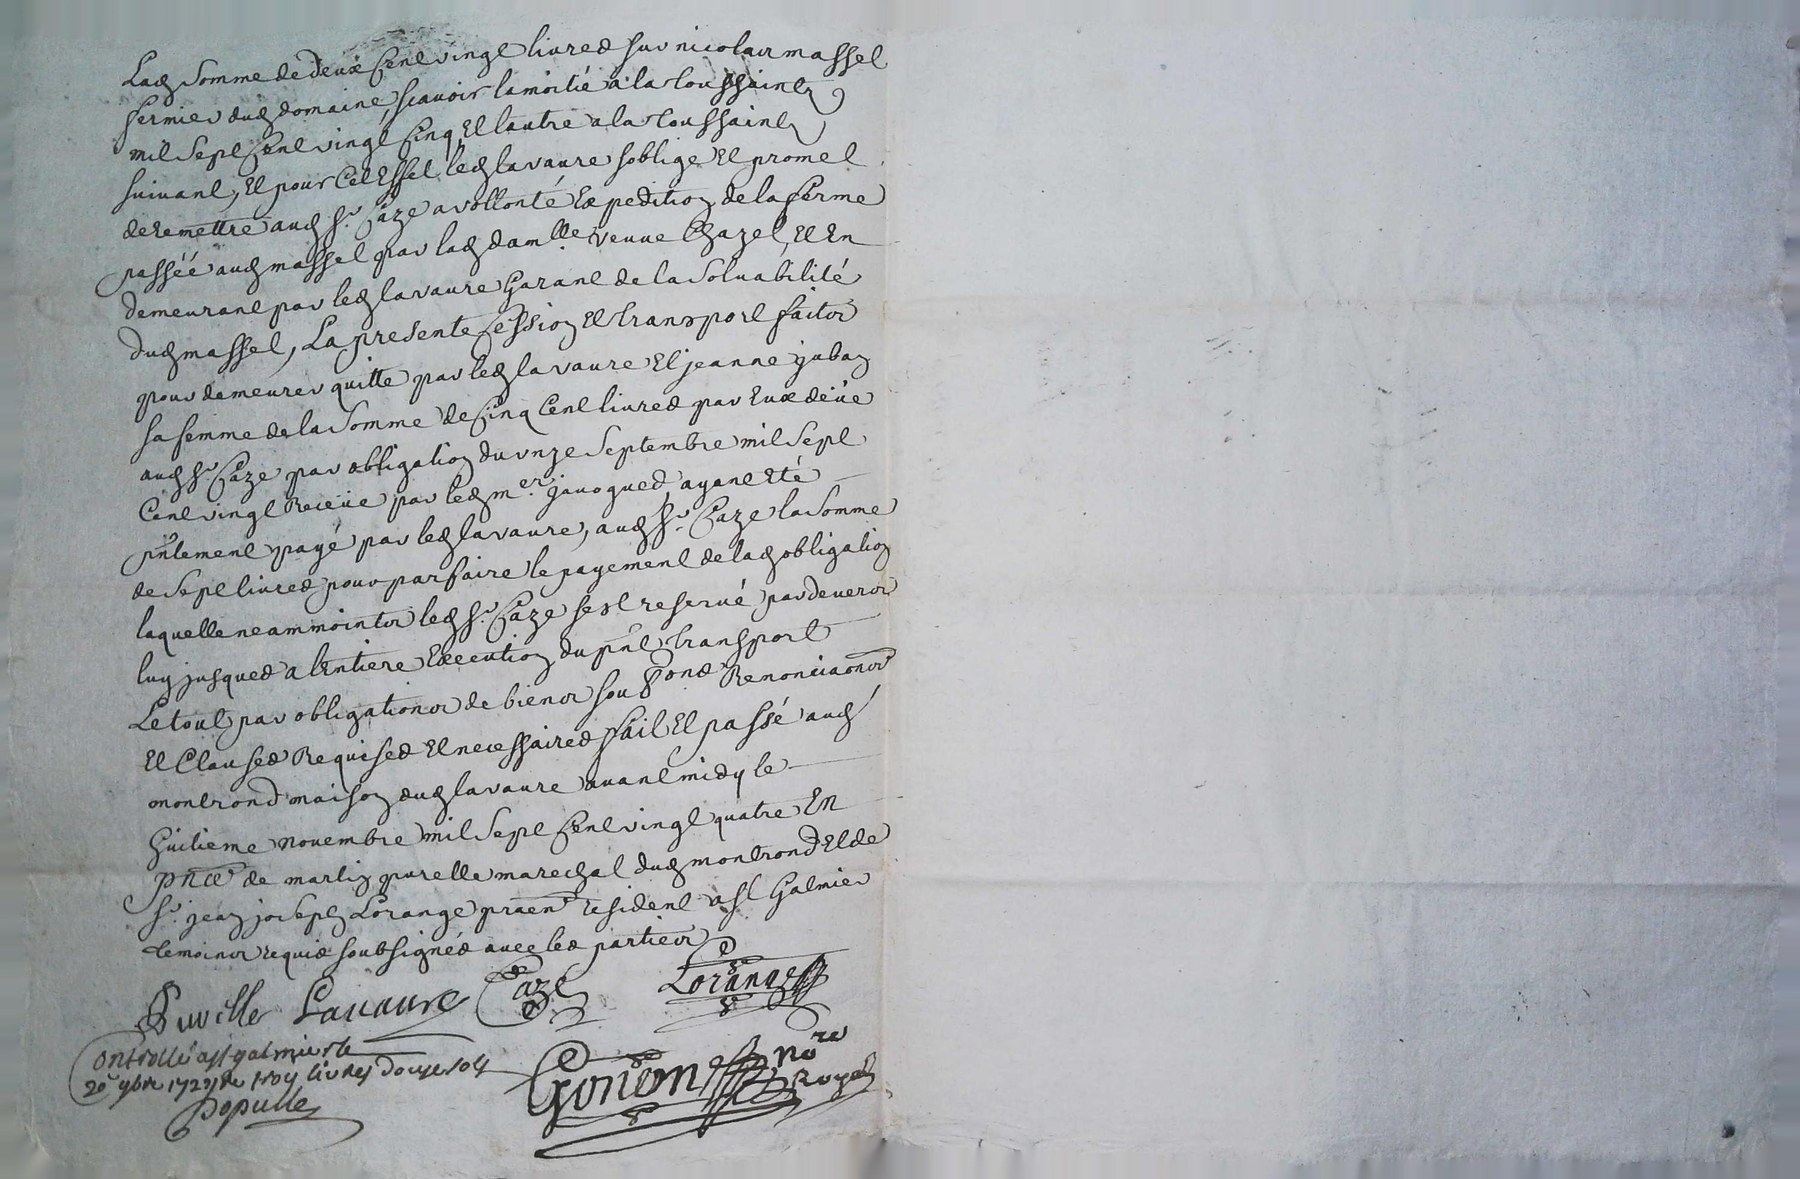 Lad somme de deux Cent vingt livres sur nicolas massel
fermier dud domaine, scavoir la moitié a la toussaint
mil sept Cent vingt Cinq Et l'autre a la toussaint
suivant, Et pour Cet Effet led lavaure soblige Et promet
de remettre aud Sr. Caze a vollonté Expedition de la ferme
passéé aud massel par lad damlle. veuve Chazel, Et En
demeurant par led lavaure Garant de la Solvabilité
dud massel, La presente Cession Et transport faitte
pour demeurer quitte par led lavaure Et jeanne juban
sa femme de la Somme de Cinq Cent livres par Eux deüe
aud Sr. Caze par obligation du unze Septembre mil Sept
Cent vingt Receüe par led mer. javogues, ayant Eté
pntement payé par led lavaure, aud Sr. Caze la Somme
de Sept livres pour parfaire le payement de lad obligation
laquelle neammointz led Sr. Caze sest reservé pardevers
luy jusques a lEntiere Execution du pnt transport
Le tout par obligations de biens sou ons Renonciaons
Et Clauses Requises Et necessaires fait Et passé aud
montrond maison dud lavaure avant midy le
huitieme novembre mil Sept Cent vingt quatre En
pnce de martin purelle marechal dud montrond Et de
Sr. jean joseph Lorange praen resident a St Galmier
temoins requis soubsignés avec les parties
Lavaure Caze Lorange
Controllé a St galmier le
20e 9bre 1724 Re troy livres douze sols
Gonon nore
Royal
Populle